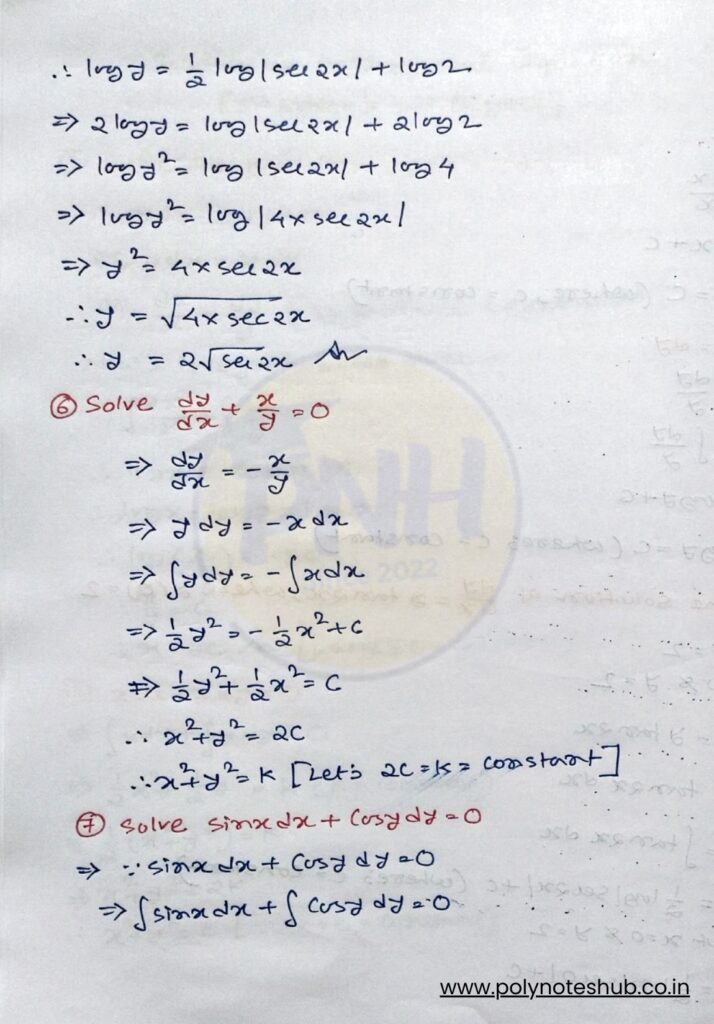 ∴ log y = 1/2 log|sec2x| + log2
=> 2logy = log|sec2x| + 2log2
=> logy² = log|sec2x| + log4
=> logy² = log|4×sec2x|
=> y² = 4×sec2x
∴ y = √4×sec2x
∴ y = 2√sec2x
⑥ Solve dy/dx + x/y = 0
=> dy/dx = -x/y
=> y dy = -x dx
=> ∫ydy = -∫xdx
=> 1/2y² = -1/2x² + C
=> 1/2y² + 1/2x² = C
∴ x²+y² = 2C
∴ x²+y² = K [Let's 2C = K = constant]
⑦ Solve sinxdx + cosydy = 0
=> ∵ sinxdx + cosydy = 0
=> ∫sinxdx + ∫cosydy = 0
PNH
2022
www.polynoteshub.co.in